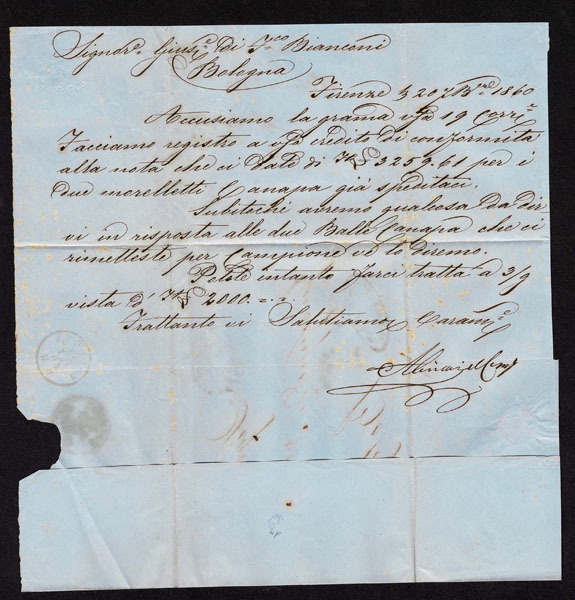 Signor Gius.e di F.co Bianconi
Bologna
Firenze 20 7Bre 1860
Accusiamo la grama v/ra 19 Corr.e
Facciamo registro a v/ro credito di conformità
alla nota che ci date di 3259.61 per i
due morellette Canapa già speditaci.
Subitochè avremo qualcosa da dir
vi in risposta alle due Balle Canapa che ci
rimetteste per Campione ve lo diremo.
Potete intanto farci tratta a 3/g
vista d' 2000.
Frattanto vi Salutiamo Caram.e